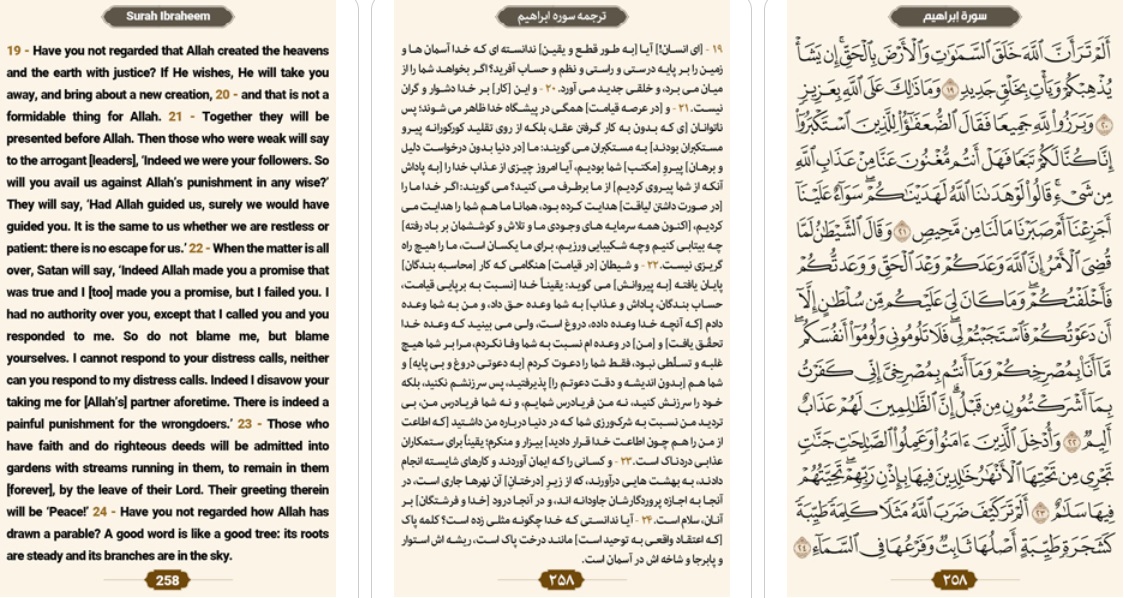 Surah Ibraheem
19 - Have you not regarded that Allah created the heavens
and the earth with justice? If He wishes, He will take you
away, and bring about a new creation, 20 - and that is not a
formidable thing for Allah. 21 - Together they will be
presented before Allah. Then those who were weak will say
to the arrogant [leaders], ‘Indeed we were your followers. So
will you avail us against Allah’s punishment in any wise?’
They will say, ‘Had Allah guided us, surely we would have
guided you. It is the same to us whether we are restless or
patient: there is no escape for us.’ 22 - When the matter is all
over, Satan will say, ‘Indeed Allah made you a promise that
was true and I [too] made you a promise, but I failed you. I
had no authority over you, except that I called you and you
responded to me. So do not blame me, but blame
yourselves. I cannot respond to your distress calls, neither
can you respond to my distress calls. Indeed I disavow your
taking me for [Allah’s] partner aforetime. There is indeed a
painful punishment for the wrongdoers.’ 23 - Those who
have faith and do righteous deeds will be admitted into
gardens with streams running in them, to remain in them
[forever], by the leave of their Lord. Their greeting therein
will be ‘Peace!’ 24 - Have you not regarded how Allah has
drawn a parable? A good word is like a good tree: its roots
are steady and its branches are in the sky.
258
ترجمه سوره ابراهیم
۱۹ - [ای انسان!] آیا [به طور قطع و یقین] ندانسته ای که خدا آسمان ها و
زمین را بر پایه درستی و راستی و نظم و حساب آفرید؟ اگر بخواهد شما را از
میان می برد، و خلقی جدید می آورد. ۲۰ - و این [کار] بر خدا دشوار و گران
نیست. ۲۱ - و [در عرصه قیامت] همگی در پیشگاه خدا ظاهر می شوند؛ پس
ناتوانان [ی که بدون به کار گرفتن عقل، بلکه از روی تقلید کورکورانه پیرو
مستکبران بودند] به مستکبران می گویند: ما [در دنیا بدون درخواست دلیل
و برهان] پیرو [مکتب] شما بودیم، آیا امروز چیزی از عذاب خدا را [به پاداش
آنکه از شما پیروی کردیم] از ما برطرف می کنید؟ می گویند: اگر خدا ما را
[در صورت داشتن لیاقت] هدایت کرده بود، همانا ما هم شما را هدایت می
کردیم، [اکنون همه سرمایه های وجودی ما و تلاش و کوششمان بر باد رفته]
چه بیتابی کنیم وچه شکیبایی ورزیم، برای ما یکسان است، ما را هیچ راه
گریزی نیست. ۲۲ - و شیطان [در قیامت] هنگامی که کار [محاسبه بندگان]
پایان یافته [به پیروانش] می گوید: یقیناً خدا [نسبت به برپایی قیامت،
حساب بندگان، پاداش و عذاب] به شما وعده حق داد، و من به شما وعده
دادم [که آنچه خدا وعده داده، دروغ است، ولی می بینید که وعده خدا
تحقّق یافت] و [من] در وعده ام نسبت به شما وفا نکردم، مرا بر شما هیچ
غلبه و تسلّطی نبود، فقط شما را دعوت کردم [به دعوتی دروغ و بی پایه] و
شما هم [بدون اندیشه و دقت دعوتم را] پذیرفتید، پس سرزنشم نکنید، بلکه
خود را سرزنش کنید، نه من فریادرس شمایم، و نه شما فریادرس من، بی
تردید من نسبت به شرک‌ورزی شما که در دنیا درباره من داشتید [که اطاعت
از من را هم چون اطاعت خدا قرار دادید] بیزار و منکرم؛ یقیناً برای ستمکاران
عذابی دردناک است. ۲۳ - و کسانی را که ایمان آوردند و کارهای شایسته انجام
دادند، به بهشت هایی درآورند، که از زیرِ [درختانِ] آن نهرها جاری است، در
آنجا به اجازه پروردگارشان جاودانه اند، و در آنجا درود [خدا و فرشتگان] بر
آنان، سلام است. ۲۴ - آیا ندانستی که خدا چگونه مثلی زده است؟ کلمه پاک
[که اعتقاد واقعی به توحید است] مانند درخت پاک است، ریشه اش استوار
و پابرجا و شاخه اش در آسمان است.
۲۵۸
سورة ابراهیم
أَلَمْ تَرَ أَنَّ ٱللَّهَ خَلَقَ ٱلسَّمَٰوَٰتِ وَٱلْأَرْضَ بِٱلْحَقِّ ۚ إِن يَشَأْ
يُذْهِبْكُمْ وَيَأْتِ بِخَلْقٍ جَدِيدٍ ۝۱۹ وَمَا ذَٰلِكَ عَلَى ٱللَّهِ بِعَزِيزٍ
۝۲۰ وَبَرَزُوا۟ لِلَّهِ جَمِيعًا فَقَالَ ٱلضُّعَفَٰٓؤُا۟ لِلَّذِينَ ٱسْتَكْبَرُوٓا۟
إِنَّا كُنَّا لَكُمْ تَبَعًا فَهَلْ أَنتُم مُّغْنُونَ عَنَّا مِنْ عَذَابِ ٱللَّهِ
مِن شَىْءٍ ۚ قَالُوا۟ لَوْ هَدَىٰنَا ٱللَّهُ لَهَدَيْنَٰكُمْ ۖ سَوَآءٌ عَلَيْنَآ
أَجَزِعْنَآ أَمْ صَبَرْنَا مَا لَنَا مِن مَّحِيصٍ ۝۲۱ وَقَالَ ٱلشَّيْطَٰنُ لَمَّا
قُضِىَ ٱلْأَمْرُ إِنَّ ٱللَّهَ وَعَدَكُمْ وَعْدَ ٱلْحَقِّ وَوَعَدتُّكُمْ
فَأَخْلَفْتُكُمْ ۖ وَمَا كَانَ لِىَ عَلَيْكُم مِّن سُلْطَٰنٍ إِلَّآ
أَن دَعَوْتُكُمْ فَٱسْتَجَبْتُمْ لِى ۖ فَلَا تَلُومُونِى وَلُومُوٓا۟ أَنفُسَكُم ۖ
مَّآ أَنَا۠ بِمُصْرِخِكُمْ وَمَآ أَنتُم بِمُصْرِخِىَّ ۖ إِنِّى كَفَرْتُ
بِمَآ أَشْرَكْتُمُونِ مِن قَبْلُ ۗ إِنَّ ٱلظَّٰلِمِينَ لَهُمْ عَذَابٌ
أَلِيمٌ ۝۲۲ وَأُدْخِلَ ٱلَّذِينَ ءَامَنُوا۟ وَعَمِلُوا۟ ٱلصَّٰلِحَٰتِ جَنَّٰتٍ
تَجْرِى مِن تَحْتِهَا ٱلْأَنْهَٰرُ خَٰلِدِينَ فِيهَا بِإِذْنِ رَبِّهِمْ ۖ تَحِيَّتُهُمْ
فِيهَا سَلَٰمٌ ۝۲۳ أَلَمْ تَرَ كَيْفَ ضَرَبَ ٱللَّهُ مَثَلًا كَلِمَةً طَيِّبَةً
كَشَجَرَةٍ طَيِّبَةٍ أَصْلُهَا ثَابِتٌ وَفَرْعُهَا فِى ٱلسَّمَآءِ ۝۲۴
۲۵۸